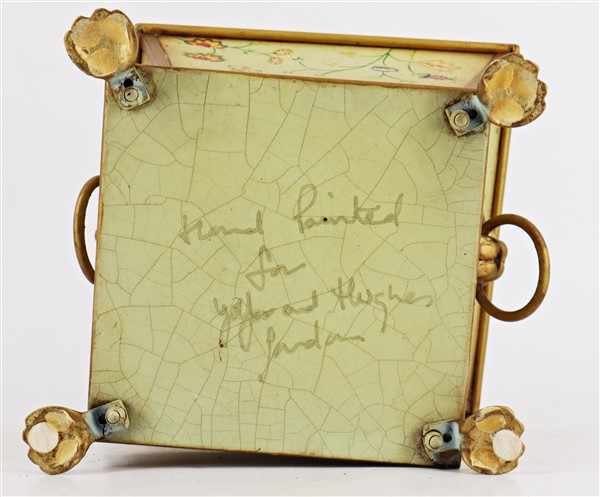 Hand Painted
for
and Hughes
London